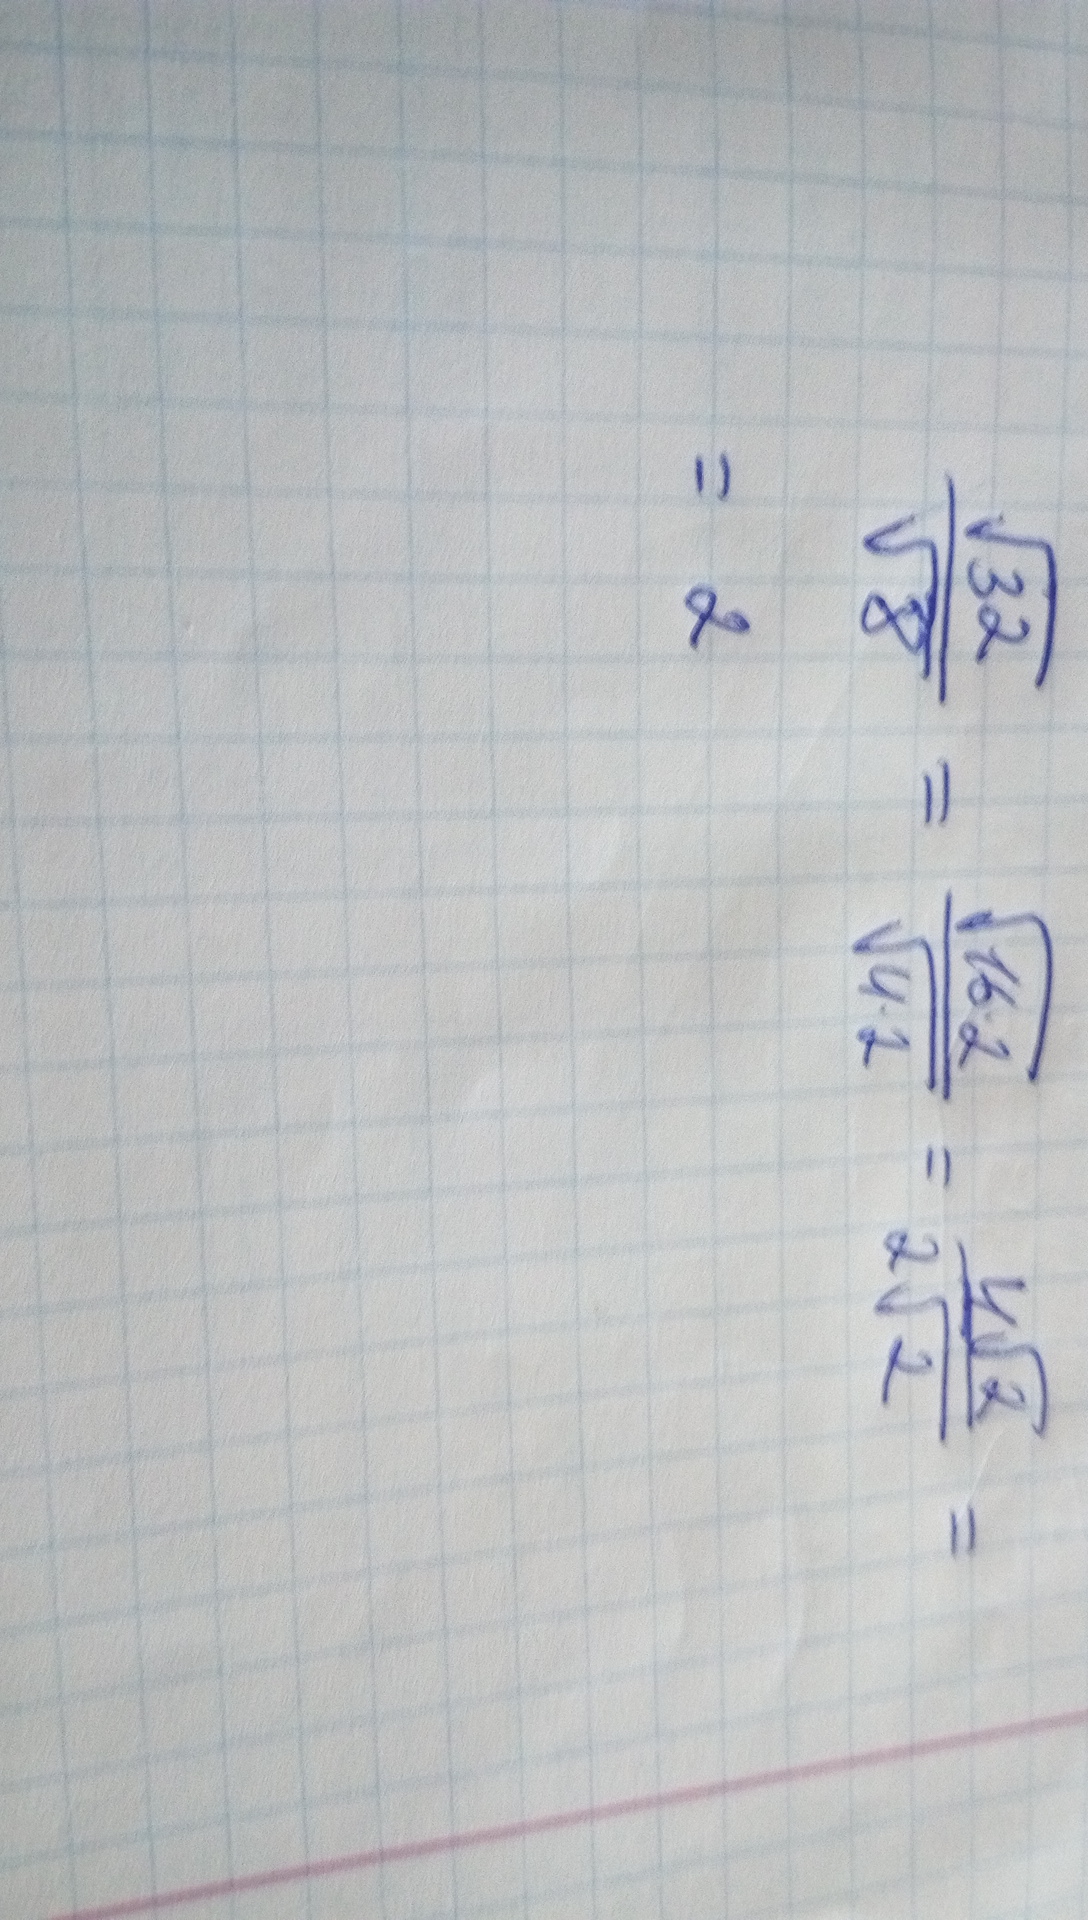 √32/√8 = √16·2/√4·2 = 4√2/2√2 =
= 2